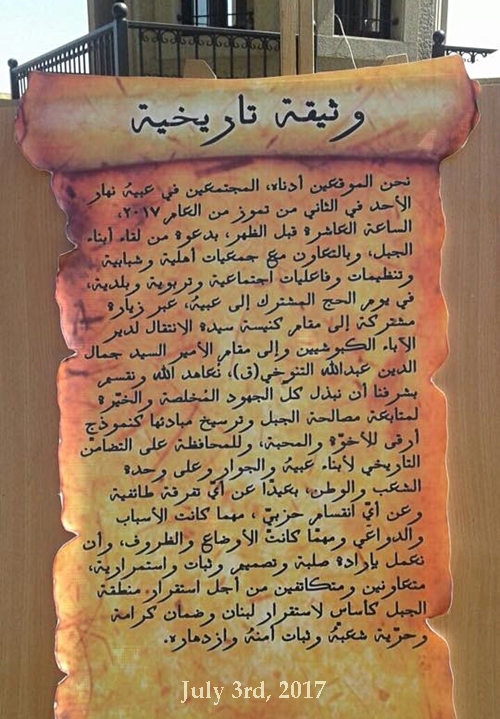 وثيقة تاريخية
نحن الموقعين أدناه، المجتمعين في عبيه نهار
الأحد في الثاني من تموز من العام ٢٠١٧،
الساعة العاشرة قبل الظهر، بدعوة من لقاء أبناء
الجبل، وبالتعاون مع جمعيات أهلية وشبابية
وتنظيمات وفاعليات اجتماعية وتربوية وبلدية،
في يوم الحج المشترك إلى عبيه، عبر زيارة
مشتركة إلى مقام كنيسة سيدة الإنتقال لدير
الآباء الكبوشيين وإلى مقام الأمير السيد جمال
الدين عبدالله التنوخي(ق)، نُعاهد الله ونقسم
بشرفنا أن نبذل كلّ الجهود المُخلصة والخيّرة
لمتابعة مصالحة الجبل وترسيخ مبادئها كنموذج
أرقى للأخوّة والمحبة، وللمحافظة على التضامن
التاريخي لأبناء عبيه والجوار وعلى وحدة
الشعب والوطن، بعيدًا عن أيّ تفرقة طائفية
وعن أيّ انقسام حزبيّ ، مهما كانت الأسباب
والدواعي ومهما كانت الأوضاع والظروف، وأن
نعمل بإرادة صلبة وتصميم وثبات واستمرارية،
متعاونين ومتكاتفين من أجل استقرار منطقة
الجبل كأساس لاستقرار لبنان وضمان كرامة
وحرّية شعبه وثبات أمنه وازدهاره.
July 3rd, 2017